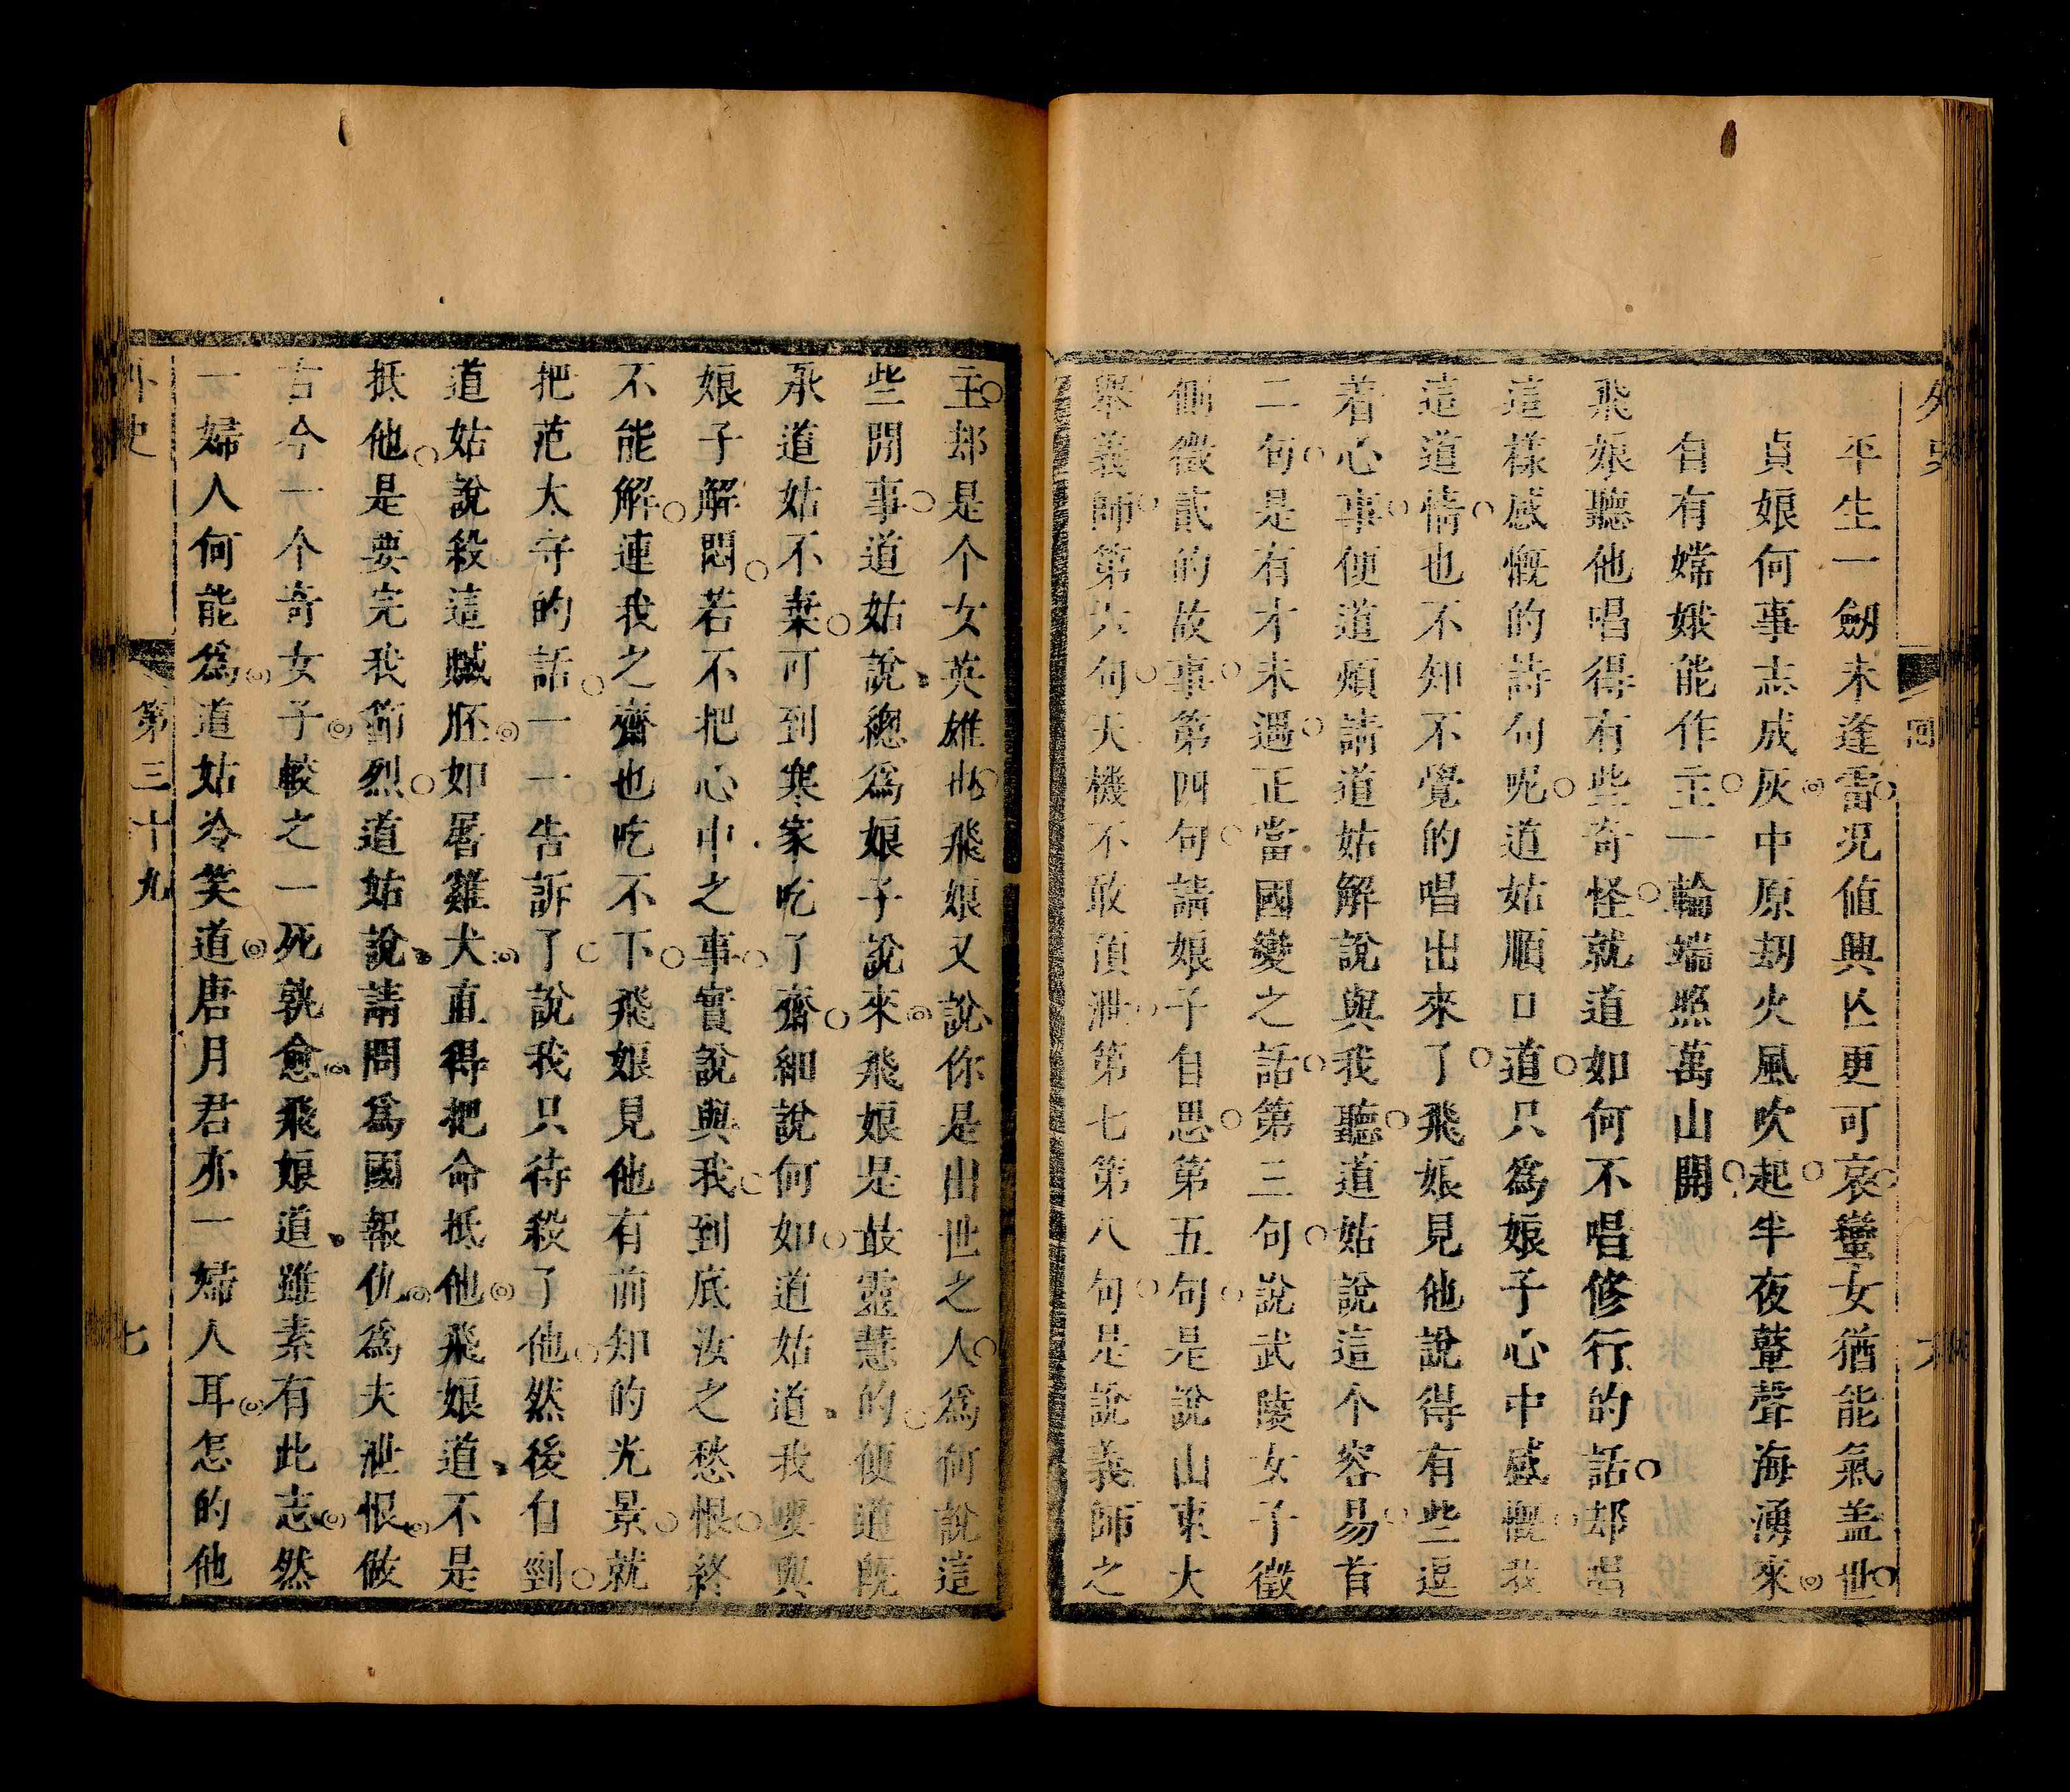 外史
回
六
平生一劒未逢雷況値興亾更可哀蠻女猶能氣盖世
貞娘何事志成灰中原刼火風吹起半夜鼙聲海湧來
自有嫦娥能作主一輪端照萬山開
飛娘聽他唱得有些奇怪就道如何不唱修行的話却唱
這樣感慨的詩句呢道姑順口道只爲娘子心中感慨我
這道情也不知不覺的唱出來了飛娘見他說得有些逗
着心事便道煩請道姑解說與我聽道姑說這个容易首
二句是有才未遇正當國變之話第三句說武陵女子徵
側徵貳的故事第四句請娘子自思第五句是說山東大
舉義師第六句天機不敢頂泄第七第八句是說義師之
主却是个女英雄也飛娘又說你是出世之人爲何說這
些閒事道姑說緫爲娘子說來飛娘是最靈慧的便道旣
承道姑不棄可到寒家吃了齋細說何如道姑道我要與
娘子解悶若不把心中之事實說與我到底汝之愁恨終
不能解連我之齋也吃不下飛娘見他有前知的光景就
把范太守的話一一告訴了說我只待殺了他然後自剄
道姑說殺這贓胚如屠雞犬直得把命抵他飛娘道不是
抵他是要完我節烈道姑說請問爲國報仇爲夫泄恨做
古今一个奇女子較之一死孰愈飛娘道雖素有此志然
一婦人何能爲道姑冷笑道唐月君亦一婦人耳怎的他
外史
第三十九
七